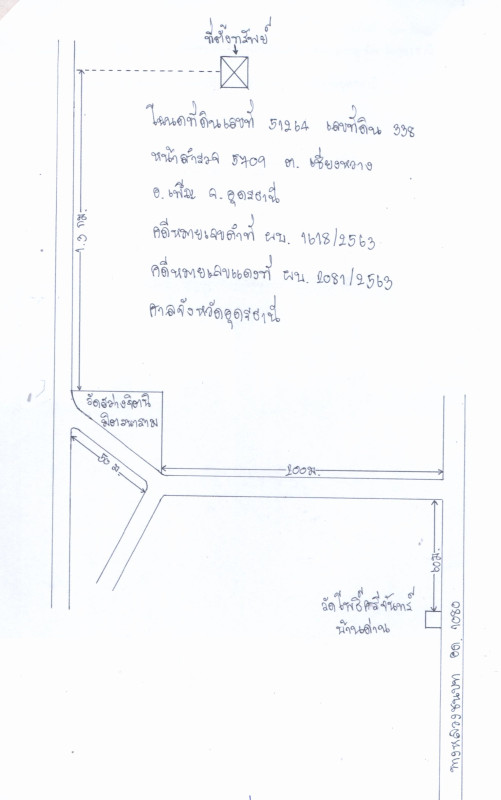 ที่ตั้งทรัพย์
โฉนดที่ดินเลขที่ 51264 เลขที่ดิน 338
หน้าสำรวจ 5709 ต. เชียงหวาง
อ. เพ็ญ จ. อุดรธานี
คดีหมายเลขดำที่ ผบ. 1618/2563
คดีหมายเลขแดงที่ ผบ. 2081/2563
ศาลจังหวัดอุดรธานี
1.3 กม.
วัดสว่างจิตนิ
มิตวนาราม
50 ม.
200 ม.
60 ม.
วัดโพธิ์ศรีจันทร์
บ้านด่าน
ทางหลวงชนบท อด. 1080